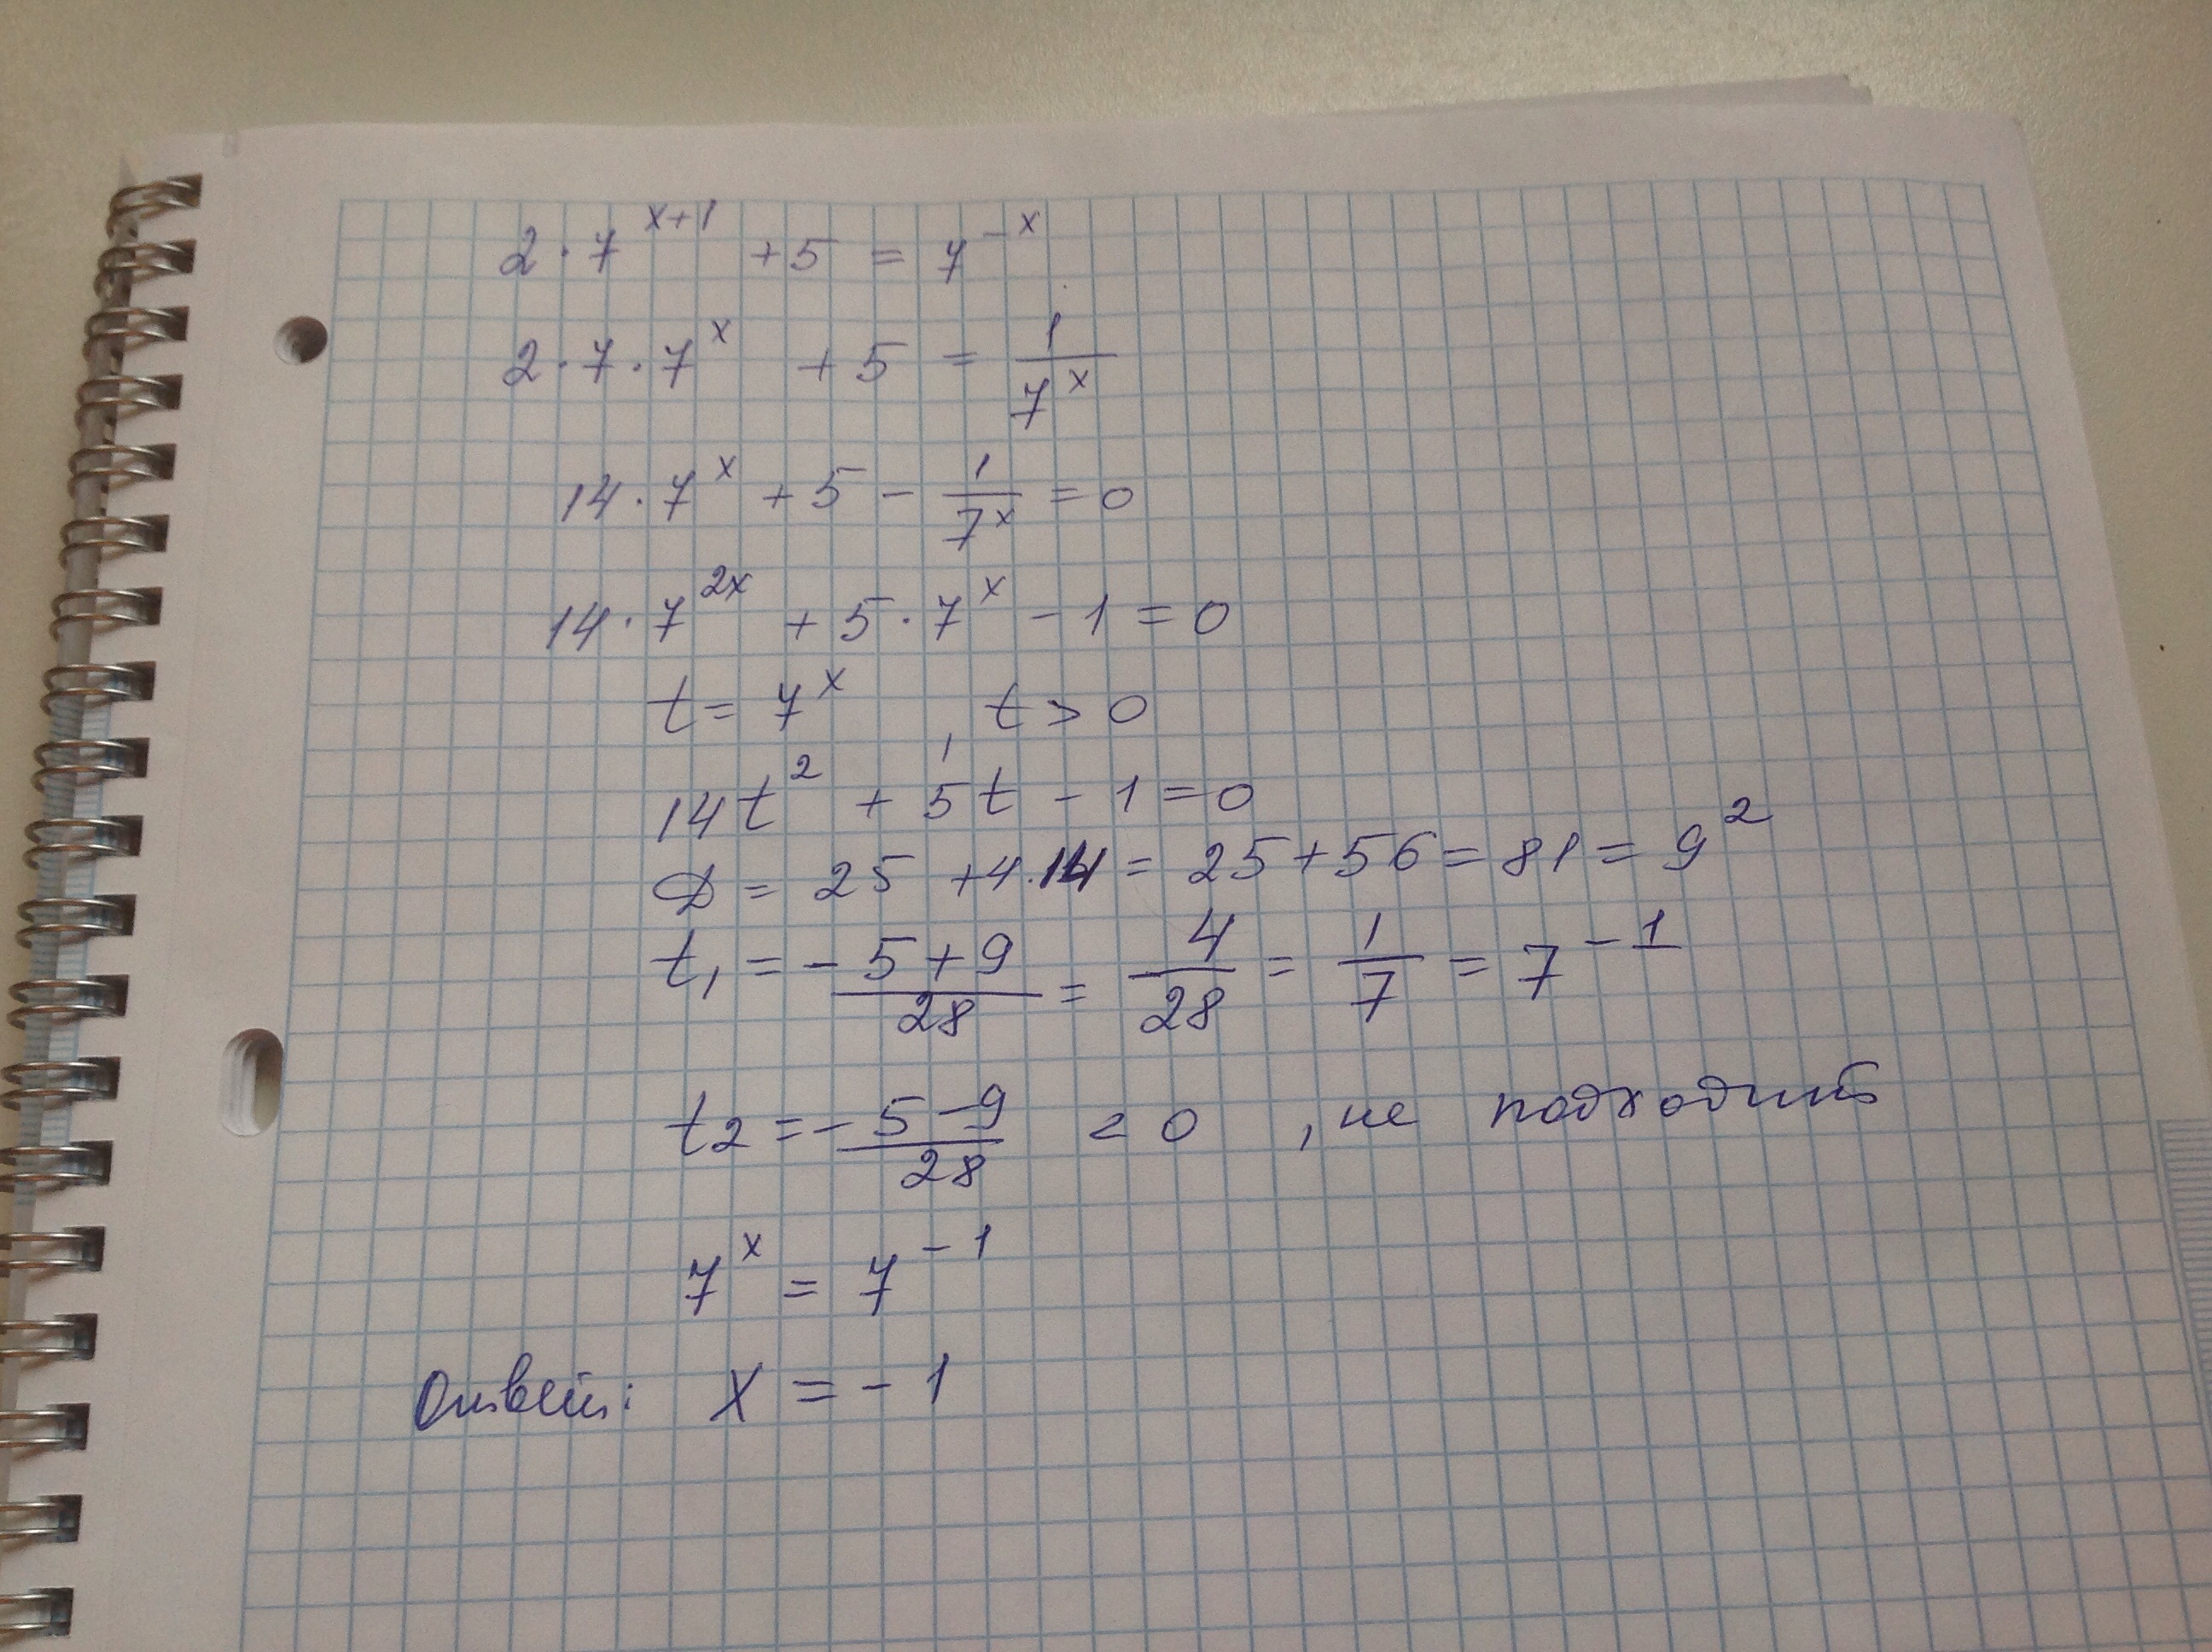 2·7^(x+1) + 5 = 7^(-x)
2·7·7^x + 5 = 1/7^x
14·7^x + 5 - 1/7^x = 0
14·7^(2x) + 5·7^x - 1 = 0
t = 7^x, t > 0
14t^2 + 5t - 1 = 0
D = 25 + 4·14 = 25 + 56 = 81 = 9^2
t₁ = (-5+9)/28 = 4/28 = 1/7 = 7^(-1)
t₂ = (-5-9)/28 < 0, не подходит
7^x = 7^(-1)
Ответ: x = -1